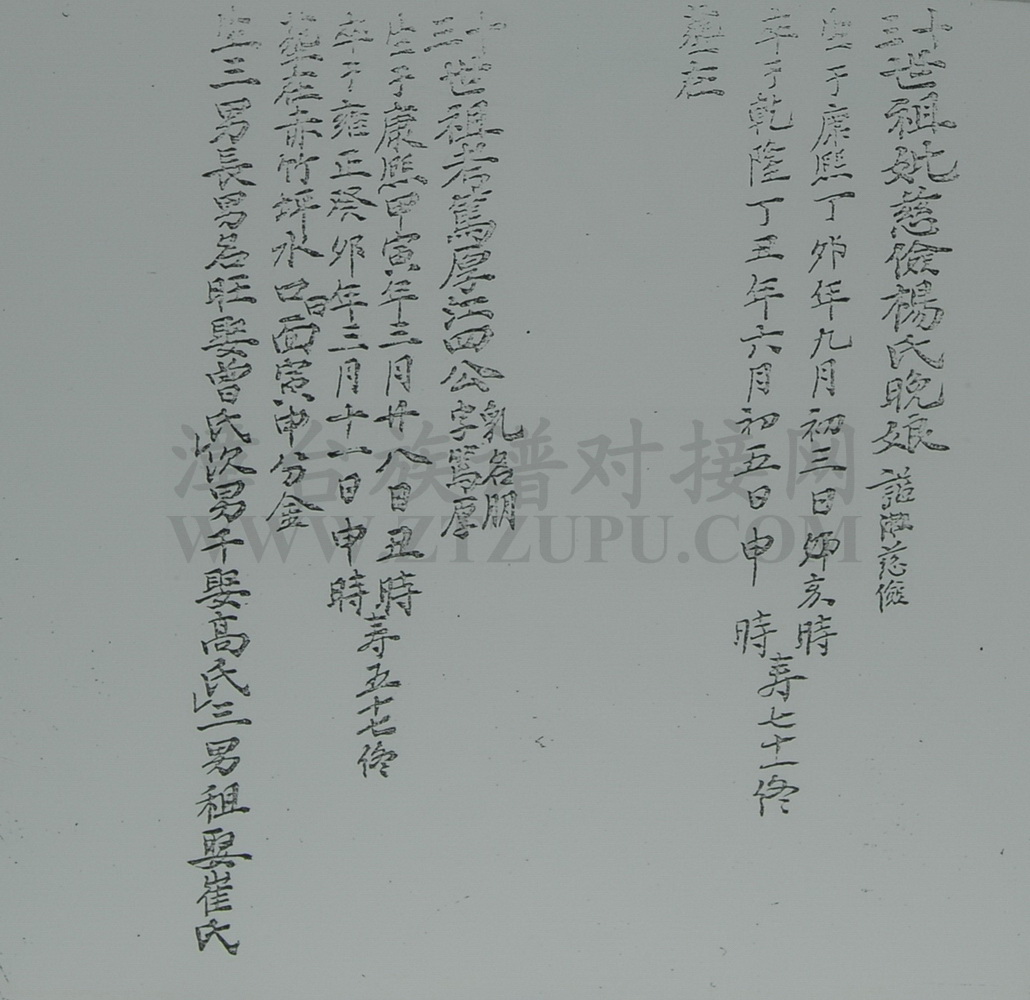 十三世祖妣慈儉楊氏晚娘 諡淑慈儉
生于康熙丁卯年九月初三日卯亥時
卒于乾隆丁丑年六月初五日申時 寿七十一
葬在
十三世祖考篤厚江四公 乳名朋 字篤厚
生于康熙甲寅年三月廿八日丑時
卒于雍正癸卯年三月十一日申時 寿五十七
葬在赤竹坪水口面寅申分金
生三男長男名旺娶曾氏次男千娶高氏三男祖娶崔氏
港台族谱对接网
WWW.ZTZUPU.COM